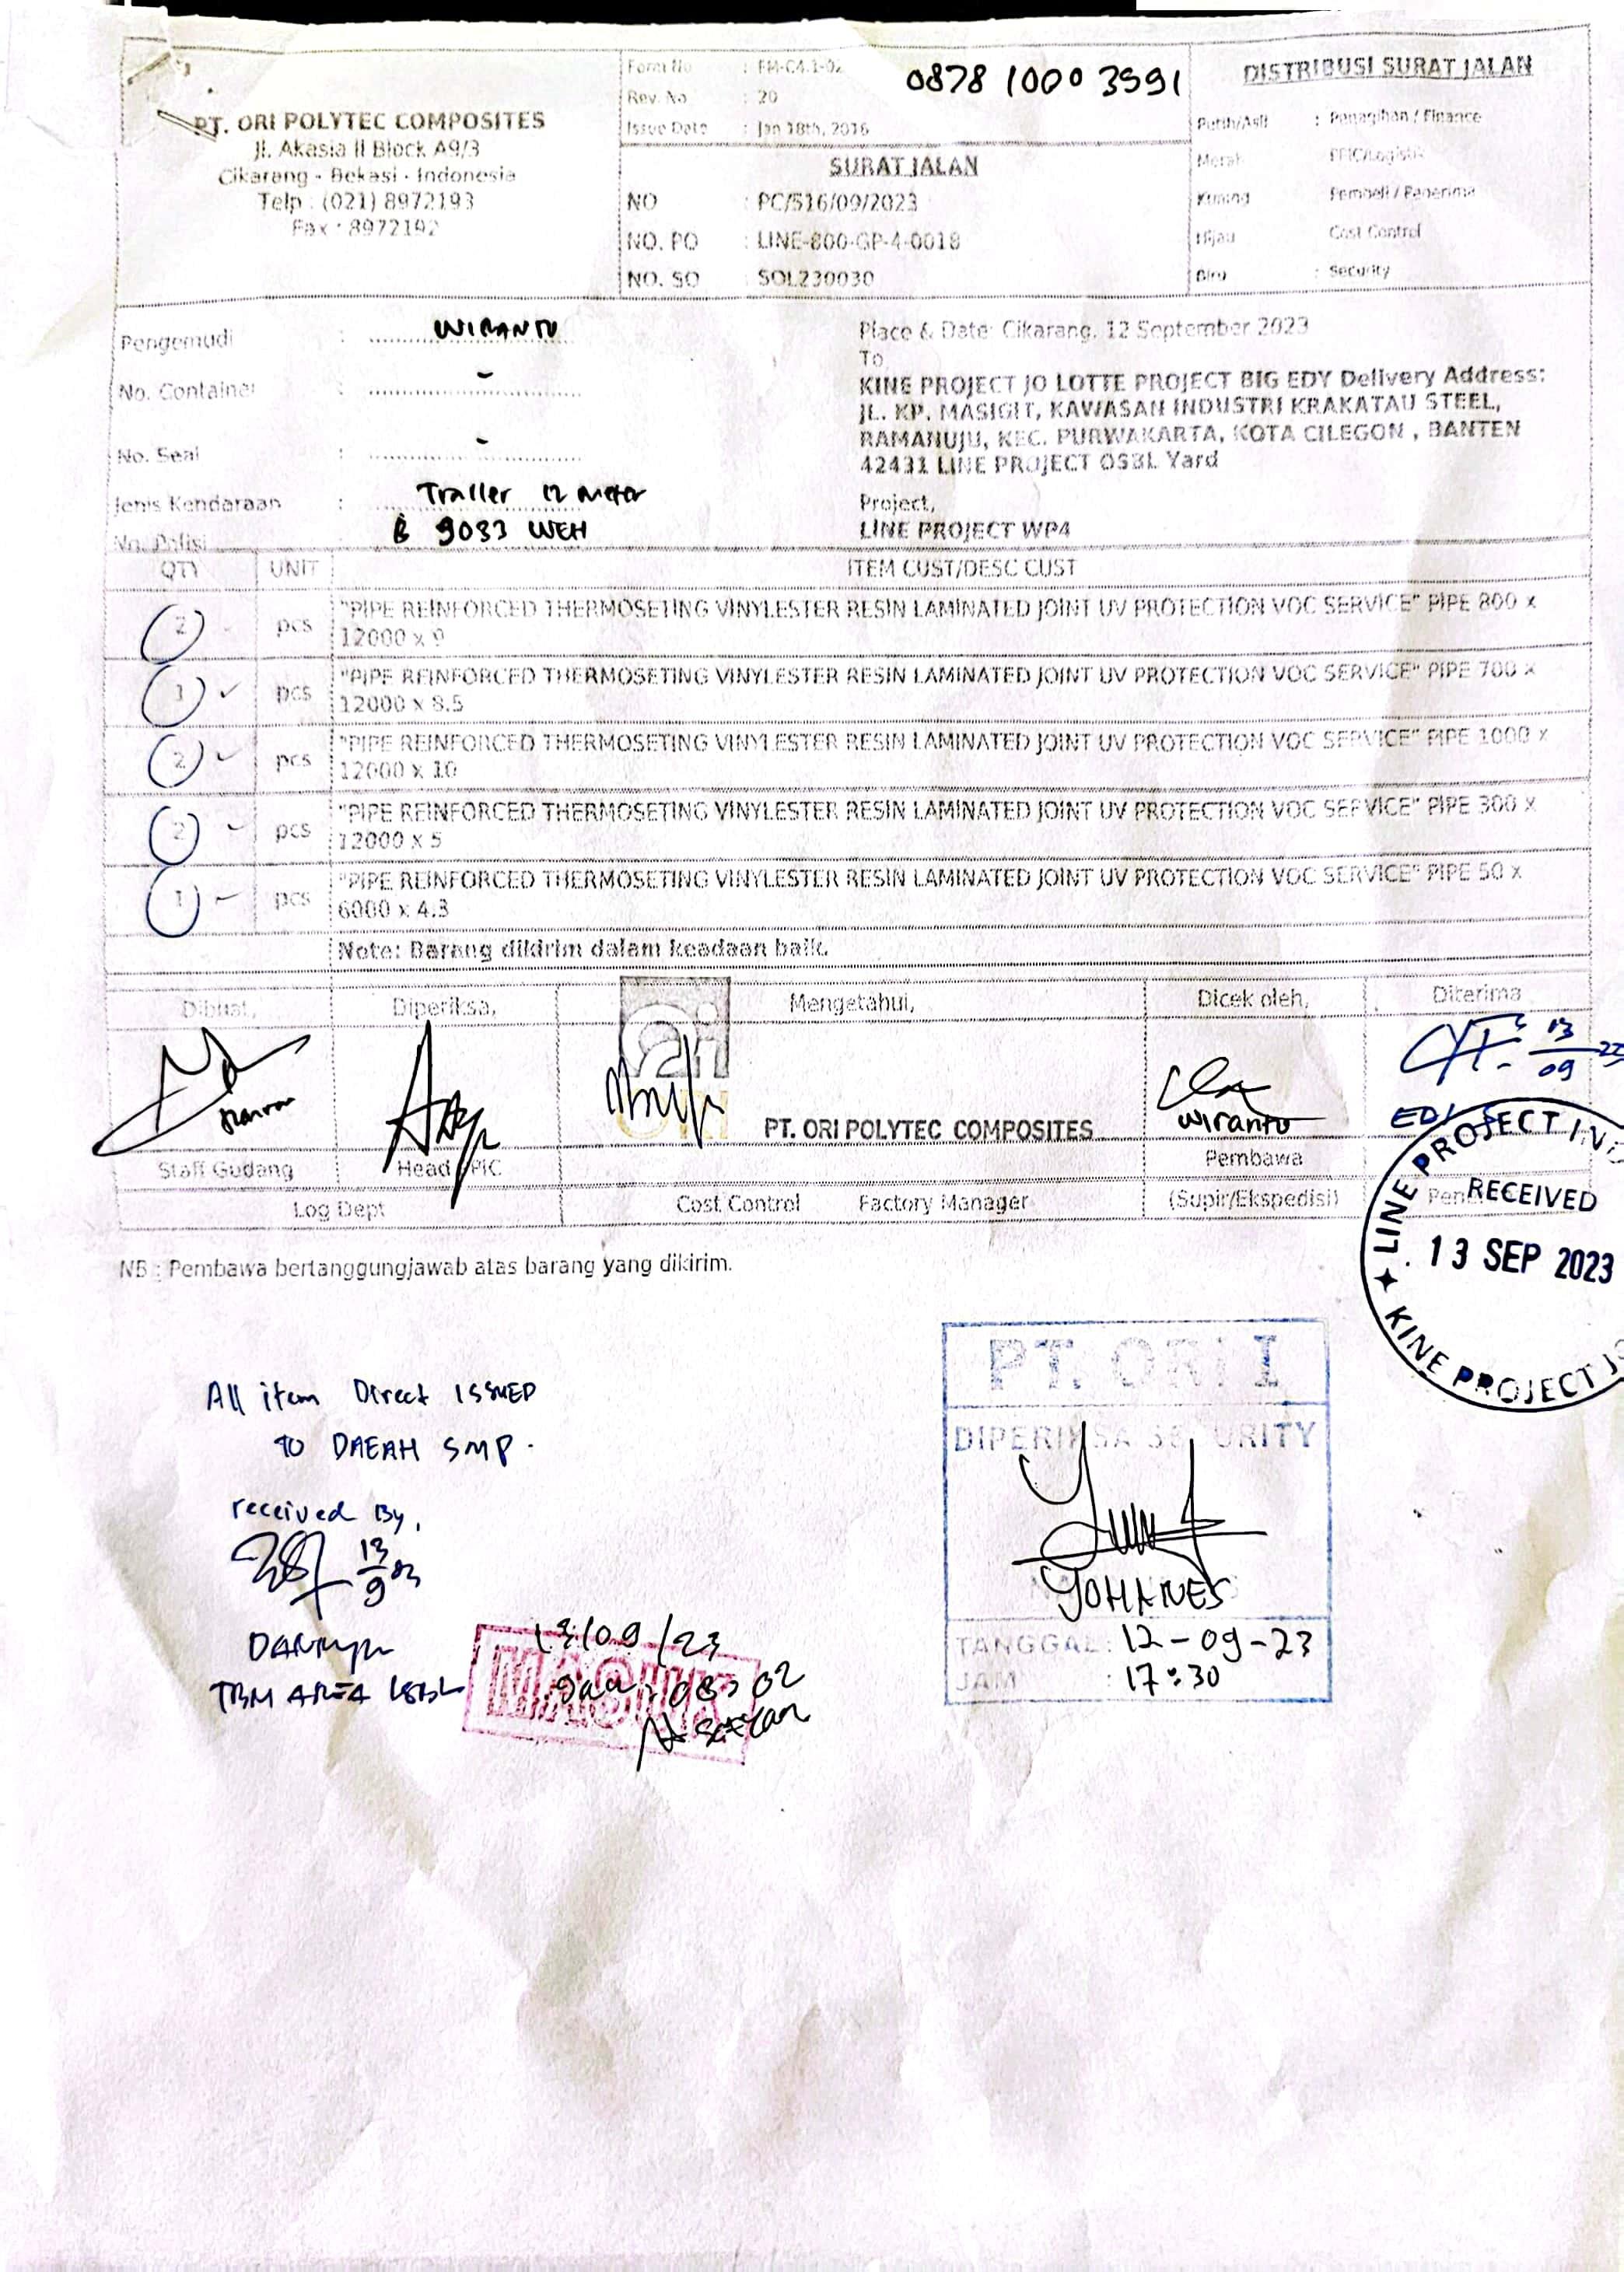 PT. ORI POLYTEC COMPOSITES
Jl. Akasia II Block A9/3
Cikarang - Bekasi - Indonesia
Telp : (021) 8972193
Fax : 8972192
Form No : FM-C4.1-02
Rev. No : 20
Issue Date : Jan 18th, 2016
0878 1000 3991
SURAT JALAN
NO : PC/516/09/2023
NO. PO : LINE-800-GP-4-0018
NO. SO : SOL230030
DISTRIBUSI SURAT JALAN
Putih/Asli : Penagihan / Finance
Merah PPIC/Logistik
Kuning Pembeli / Penerima
Hijau Cost Control
Biru : Security
Pengemudi : WIRANTO
No. Container : -
No. Seal : -
Jenis Kendaraan : Trailer 12 meter
No. Polisi B 9033 WEH
Place & Date: Cikarang, 12 September 2023
To
KINE PROJECT JO LOTTE PROJECT BIG EDY Delivery Address:
JL. KP. MASIGIT, KAWASAN INDUSTRI KRAKATAU STEEL,
RAMANUJU, KEC. PURWAKARTA, KOTA CILEGON , BANTEN
42431 LINE PROJECT OSBL Yard
Project,
LINE PROJECT WP4
QTY UNIT ITEM CUST/DESC CUST
2 pcs "PIPE REINFORCED THERMOSETING VINYLESTER RESIN LAMINATED JOINT UV PROTECTION VOC SERVICE" PIPE 800 x
12000 x 9
pcs "PIPE REINFORCED THERMOSETING VINYLESTER RESIN LAMINATED JOINT UV PROTECTION VOC SERVICE" PIPE 700 x
12000 x 8.5
2 pcs "PIPE REINFORCED THERMOSETING VINYLESTER RESIN LAMINATED JOINT UV PROTECTION VOC SERVICE" PIPE 1000 x
12000 x 10
2 pcs "PIPE REINFORCED THERMOSETING VINYLESTER RESIN LAMINATED JOINT UV PROTECTION VOC SERVICE" PIPE 300 x
12000 x 5
1 pcs "PIPE REINFORCED THERMOSETING VINYLESTER RESIN LAMINATED JOINT UV PROTECTION VOC SERVICE" PIPE 50 x
6000 x 4.3
Note: Barang dikirim dalam keadaan baik.
Dibuat, Diperiksa, Mengetahui, Dicek oleh, Diterima
13
09
ORI
PT. ORI POLYTEC COMPOSITES
Wiranto
EDI
Staff Gudang Head PPIC Pembawa
Log Dept Cost Control Factory Manager (Supir/Ekspedisi)
LINE PROJECT
RECEIVED
13 SEP 2023
KINE PROJECT
NB : Pembawa bertanggungjawab atas barang yang dikirim.
All item Direct ISSUED
TO DAEAH SMP.
received By,
13
9 23
TBM AREA
13/09/23
MASUK
PT. ORI I
DIPERIKSA SECURITY
YOHANES
TANGGAL : 12-09-23
JAM : 17:30